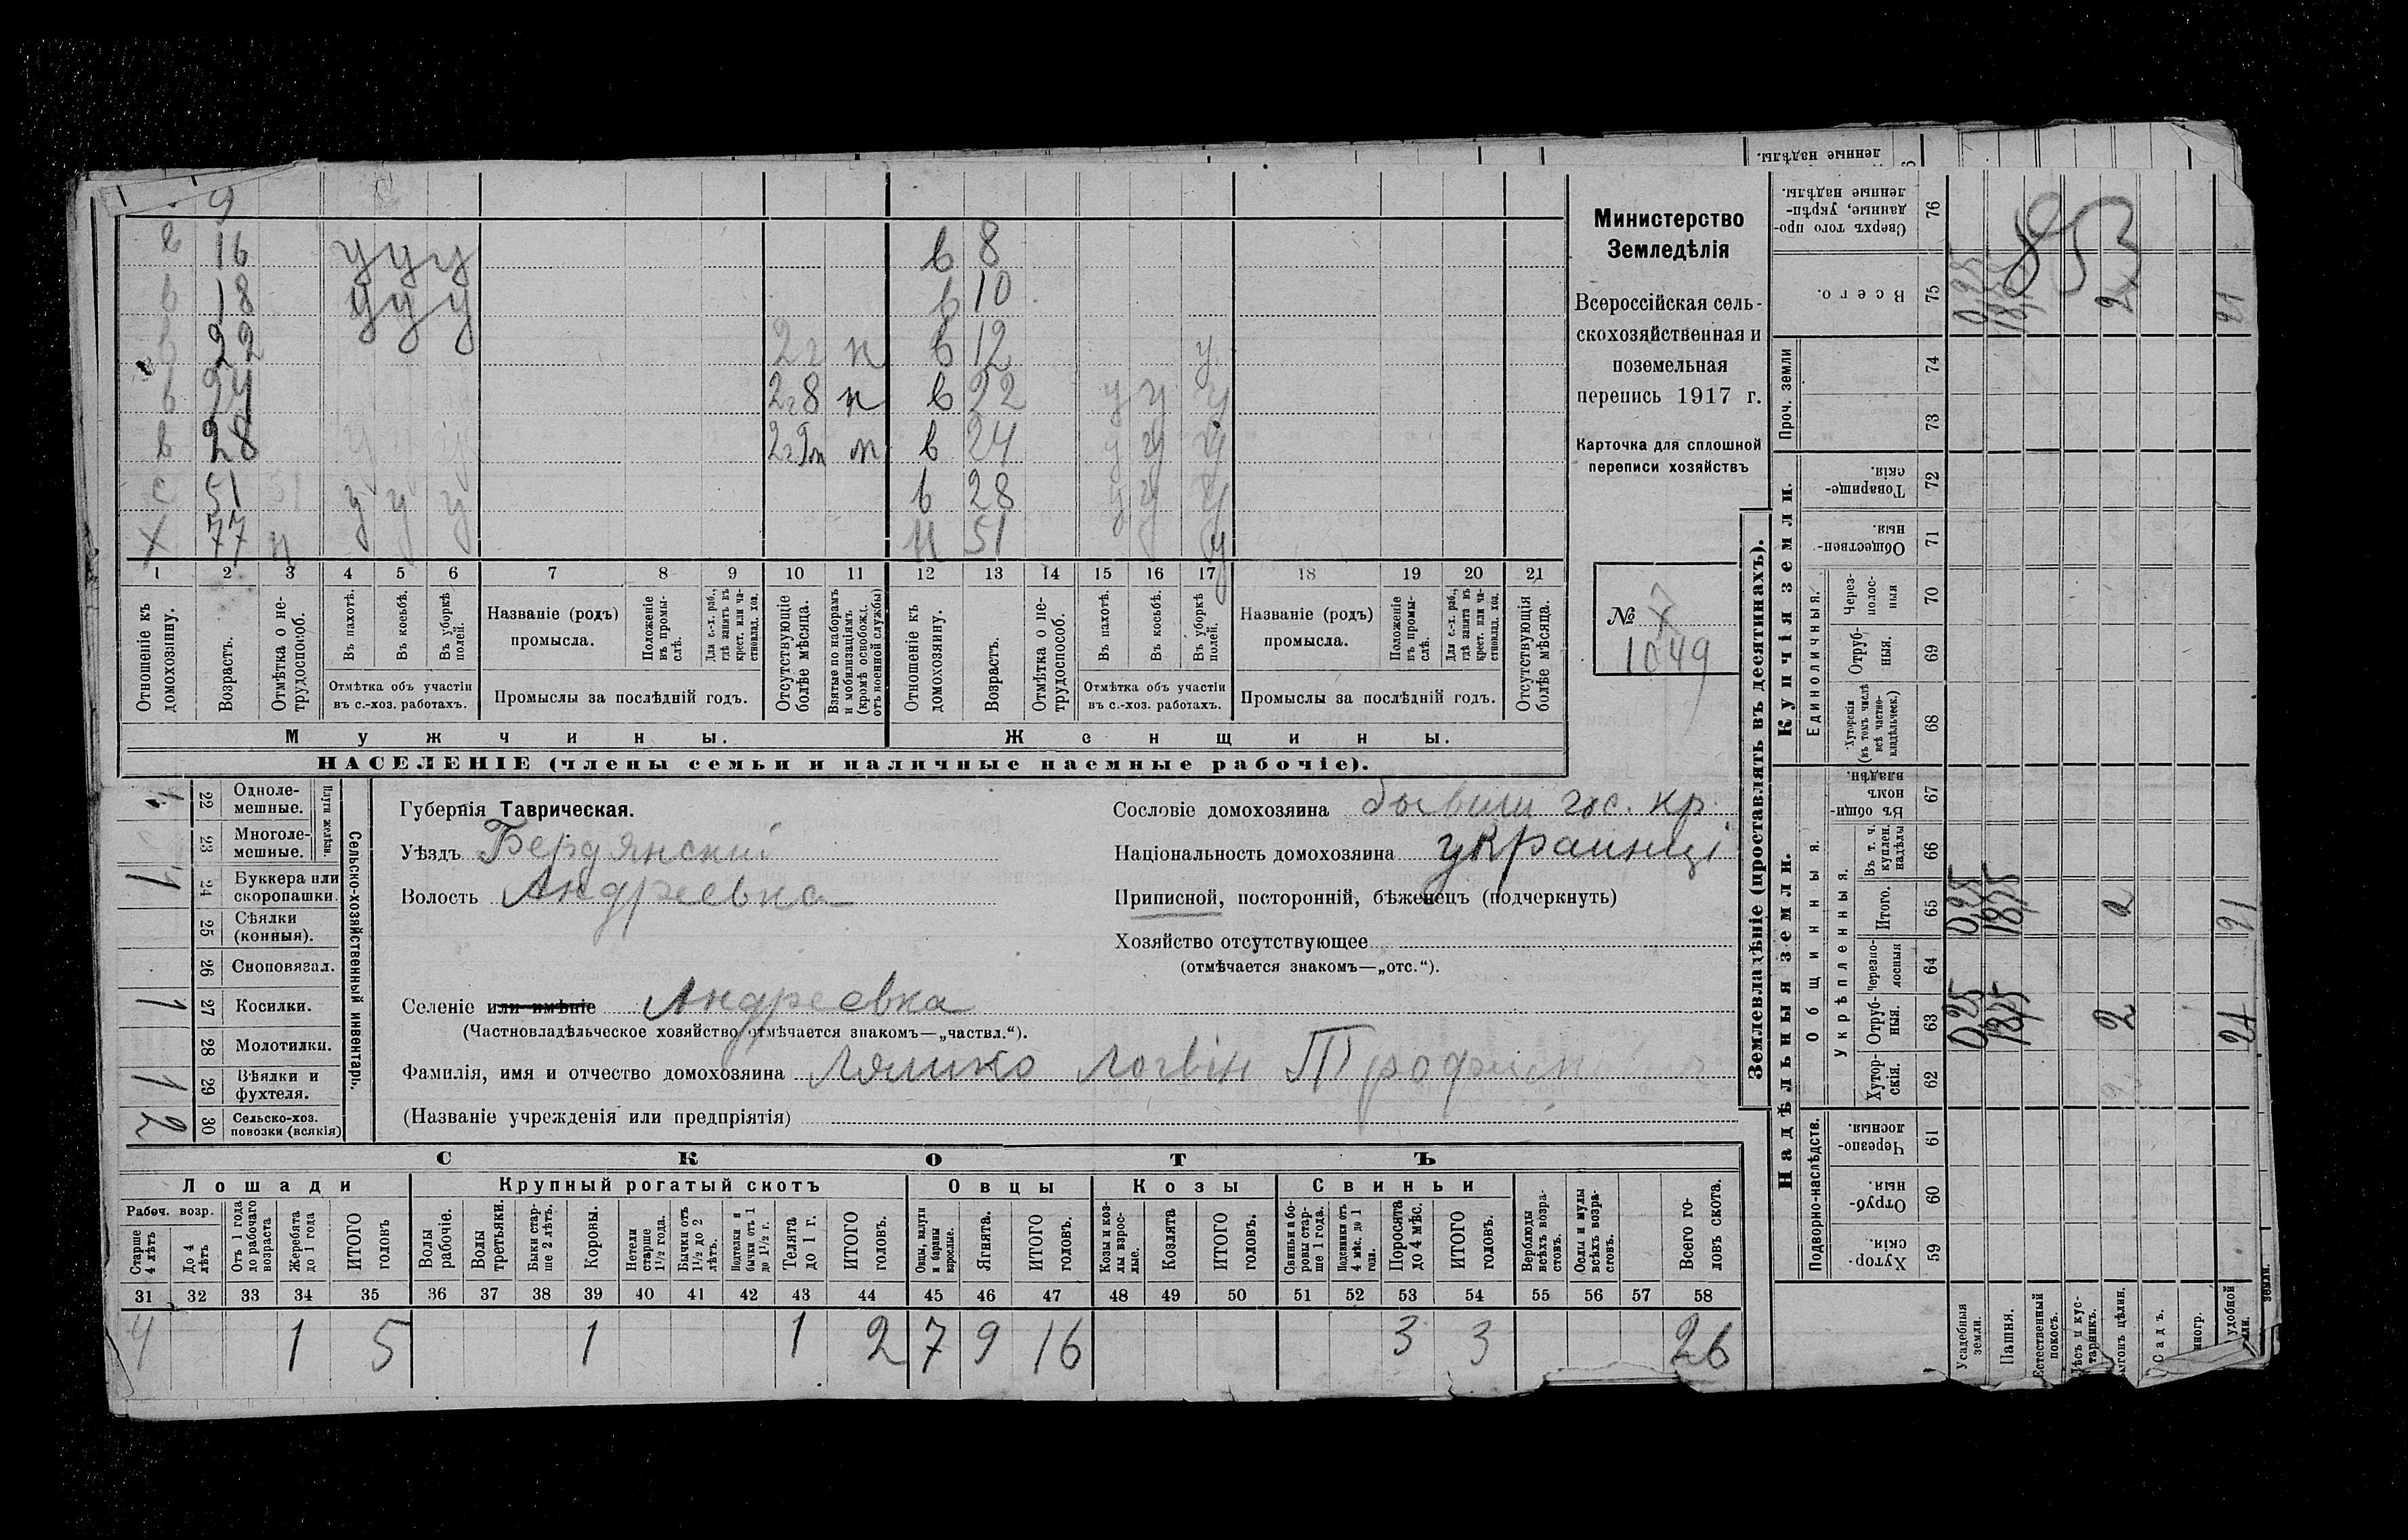 9
в 16 у у у в 8
в 18 у у у в 10
в 22 2 г н в 12 у
в 24 2 г 8 н в 22 у у у
в 28 2 г 9 м в 24 у у у
с 51 у у у в 28 у у у
х 77 н 51 у
1 2 3 4 5 6 7 8 9 10 11 12 13 14 15 16 17 18 19 20 21
Отношеніе къ домохозяину.
Возрастъ.
Отмѣтка о не-трудоспособ.
Въ пахотѣ.
Въ косьбѣ.
Въ уборкѣ полей.
Отмѣтка объ участіи
въ с.-хоз. работахъ.
Названіе (родъ)
промысла.
Положеніе въ промы-слѣ.
Для с.-х. раб., гдѣ занятъ въ крест. или ча-стновлад. хоз.
Промыслы за послѣдній годъ.
Отсутствующіе болѣе мѣсяца.
Взятые по наборамъ и мобилизаціямъ (кромѣ освобожд. отъ военной службы)
Отношеніе къ домохозяину.
Возрастъ.
Отмѣтка о не-трудоспособ.
Въ пахотѣ.
Въ косьбѣ.
Въ уборкѣ полей.
Отмѣтка объ участіи
въ с.-хоз. работахъ.
Названіе (родъ)
промысла.
Положеніе въ промы-слѣ.
Для с.-х. раб., гдѣ занята въ крест. или ча-стновлад. хоз.
Промыслы за послѣдній годъ.
Отсутствующія болѣе мѣсяца.
Мужчины. Женщины.
НАСЕЛЕНІЕ (члены семьи и наличные наемные рабочіе).
Министерство
Земледѣлія
Всероссійская сель-
скохозяйственная и
поземельная
перепись 1917 г.
Карточка для сплошной
переписи хозяйствъ
№ 7
1049
Сельско-хозяйственный инвентарь.
Плуги желѣзн.
22 Одноле-мешные.
23 Многоле-мешные.
1 24 Буккера или скоропашки.
25 Сѣялки (конныя).
26 Сноповязал.
1 27 Косилки.
28 Молотилки.
1 29 Вѣялки и фухтеля.
2 30 Сельско-хоз. повозки (всякія)
Губернія Таврическая.
Уѣздъ Бердянскій
Волость Андреевка
Селеніе или имѣніе Андреевка
(Частновладѣльческое хозяйство отмѣчается знакомъ—„частвл.“).
Фамилія, имя и отчество домохозяина Ляшко Логвін Трофимович
(Названіе учрежденія или предпріятія)
Сословіе домохозяина бывши гос. кр.
Національность домохозяина украинці
Приписной, посторонній, бѣженецъ (подчеркнуть)
Хозяйство отсутствующее
(отмѣчается знакомъ—„отс.“).
СКОТЪ
Лошади Крупный рогатый скотъ Овцы Козы Свиньи
Рабоч. возр.
Старше 4 лѣтъ
До 4 лѣтъ
Отъ 1 года до рабочаго возраста
Жеребята до 1 года
ИТОГО головъ
Волы рабочіе.
Волы третьяки.
Быки стар-ше 2 лѣтъ.
Коровы.
Нетели старше 1½ года.
Бычки отъ 1½ до 2 лѣтъ.
Подтелки и бычки отъ 1 до 1½ г.
Телята до 1 г.
ИТОГО головъ.
Овцы, валухи и бараны взрослые.
Ягнята.
ИТОГО головъ.
Козы и коз-лы взрос-лые.
Козлята
ИТОГО головъ.
Свиньи и бо-ровы стар-ше 1 года.
Подсвинки отъ 4 мѣс. до 1 года.
Поросята до 4 мѣс.
ИТОГО головъ.
Верблюды всѣхъ возра-стовъ.
Ослы и мулы всѣхъ возра-стовъ.
Всего го-ловъ скота.
31 32 33 34 35 36 37 38 39 40 41 42 43 44 45 46 47 48 49 50 51 52 53 54 55 56 57 58
4 1 5 1 1 2 7 9 16 3 3 26
Землевладѣніе (проставлять въ десятинахъ).
Надѣльныя земли. Купчія земли.
Подворно-наслѣдств.
Общинныя.
Укрѣпленныя.
Единоличныя.
Проч. земли
Хутор-скія. 59
Отруб-ныя. 60
Черезпо-лосныя. 61
Хутор-скія. 62
Отруб-ныя. 63 0,25 18,75 2 21
Черезпо-лосныя 64
Итого. 65 0,25 18,75 2 21
Въ т. ч. куплен. надѣлы 66
Въ общи-номъ владѣн. 67
Хуторскія (въ томъ числѣ всѣ частно-владѣльческ.) 68
Отруб-ныя. 69
Через-полос-ныя 70
Обществен-ныя. 71
Товарище-скія. 72
73
74
Всего. 75 0,25 18,75 2 21
Сверхъ того про-данные, укрѣп-ленные надѣлы. 76
853
денные надѣлы.
Усадебныя земли.
Пашня.
Естественный покосъ.
лѣсъ и кус-тарникъ.
выгонъ цѣлин.
Садъ.
удобной
земли.